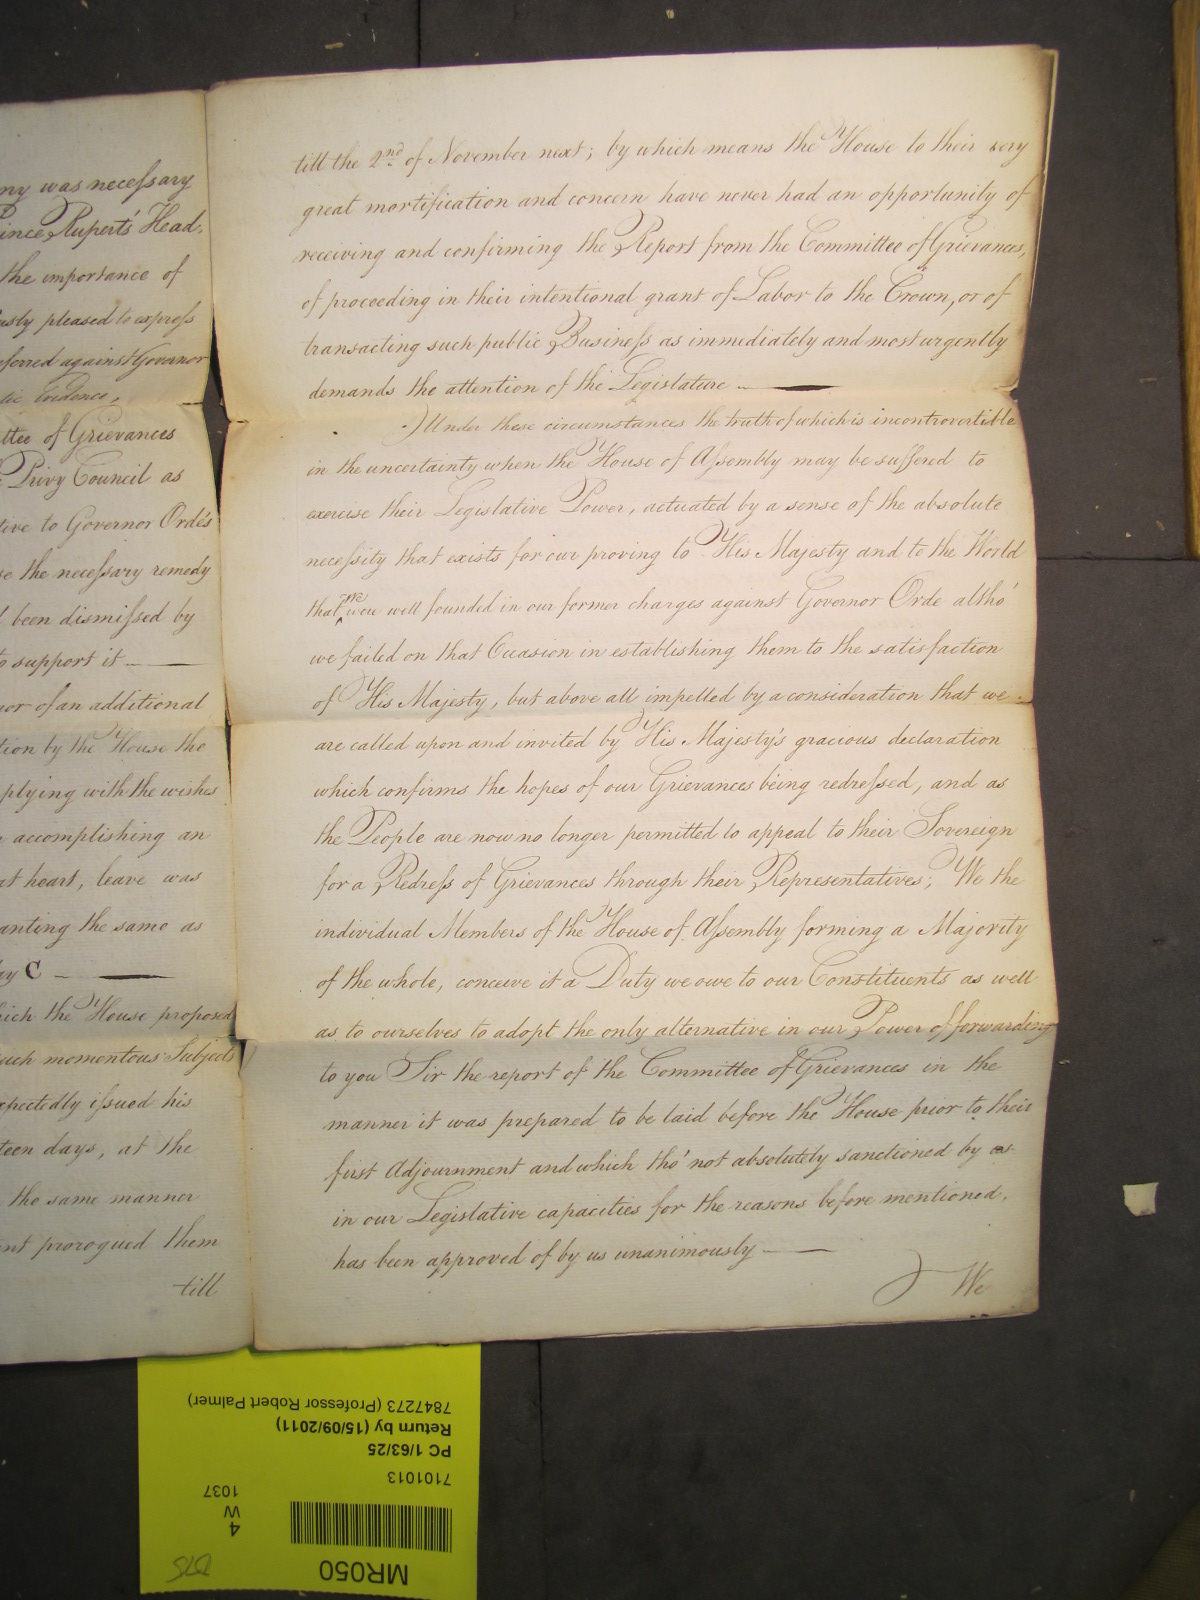 ny was necessary
ince Rupert's Head,
the importance of
usly pleased to express
eferred against Governor
tic Evidence,
ttee of Grievances
Privy Council as
tive to Governor Orde's
se the necessary remedy
been dismissed by
to support it
nor of an additional
tion by the House tho
plying with the wishes
accomplishing an
at heart, leave was
anting the same as
by C
hich the House proposed
uch momentous Subjects
xpectedly issued his
teen days, at the
the same manner
nt prorogued them
till
till the 2nd of November next; by which means the House to their very
great mortification and concern have never had an opportunity of
receiving and confirming the Report from the Committee of Grievances,
of proceeding in their intentional grant of Labor to the Crown, or of
transacting such public Business as immediately and most urgently
demands the attention of the Legislature
Under these circumstances the truth of which is incontrovertible
in the uncertainty when the House of Assembly may be suffered to
exercise their Legislative Power, actuated by a sense of the absolute
necessity that exists for our proving to His Majesty and to the World
that we were well founded in our former charges against Governor Orde altho'
we failed on that Occasion in establishing them to the satisfaction
of His Majesty, but above all impelled by a consideration that we
are called upon and invited by His Majesty's gracious declaration
which confirms the hopes of our Grievances being redressed, and as
the People are now no longer permitted to appeal to their Sovereign
for a Redress of Grievances through their Representatives; We the
individual Members of the House of Assembly forming a Majority
of the whole, conceive it a Duty we owe to our Constituents as well
as to ourselves to adopt the only alternative in our Power of forwarding
to you Sir the report of the Committee of Grievances in the
manner it was prepared to be laid before the House prior to their
first Adjournment and which tho' not absolutely sanctioned by us
in our Legislative capacities for the reasons before mentioned,
has been approved of by us unanimously
We
MR050
7101013
4
W
1037
PC 1/63/25
Return by (15/09/2011)
7847273 (Professor Robert Palmer)